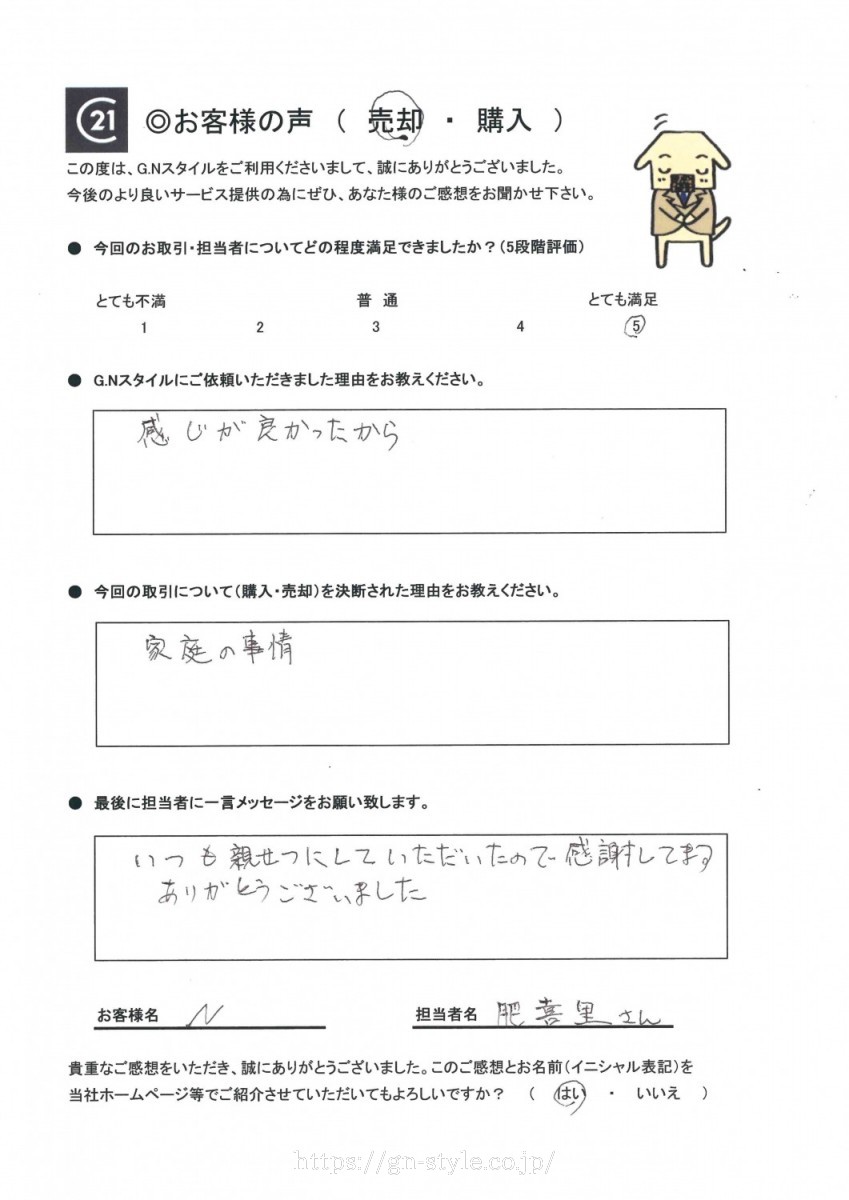 C21 ◎お客様の声 ( 売却 ・ 購入 )
この度は、G.Nスタイルをご利用くださいまして、誠にありがとうございました。
今後のより良いサービス提供の為にぜひ、あなた様のご感想をお聞かせ下さい。
● 今回のお取引・担当者についてどの程度満足できましたか?(5段階評価)
とても不満 普 通 とても満足
1 2 3 4 5
● G.Nスタイルにご依頼いただきました理由をお教えください。
感じが良かったから
● 今回の取引について(購入・売却)を決断された理由をお教えください。
家庭の事情
● 最後に担当者に一言メッセージをお願い致します。
いつも親せつにしていただいたので感謝してます
ありがとうございました
お客様名 N 担当者名 肥喜里さん
貴重なご感想をいただき、誠にありがとうございました。このご感想とお名前(イニシャル表記)を
当社ホームページ等でご紹介させていただいてもよろしいですか? ( はい ・ いいえ )
https://gn-style.co.jp/